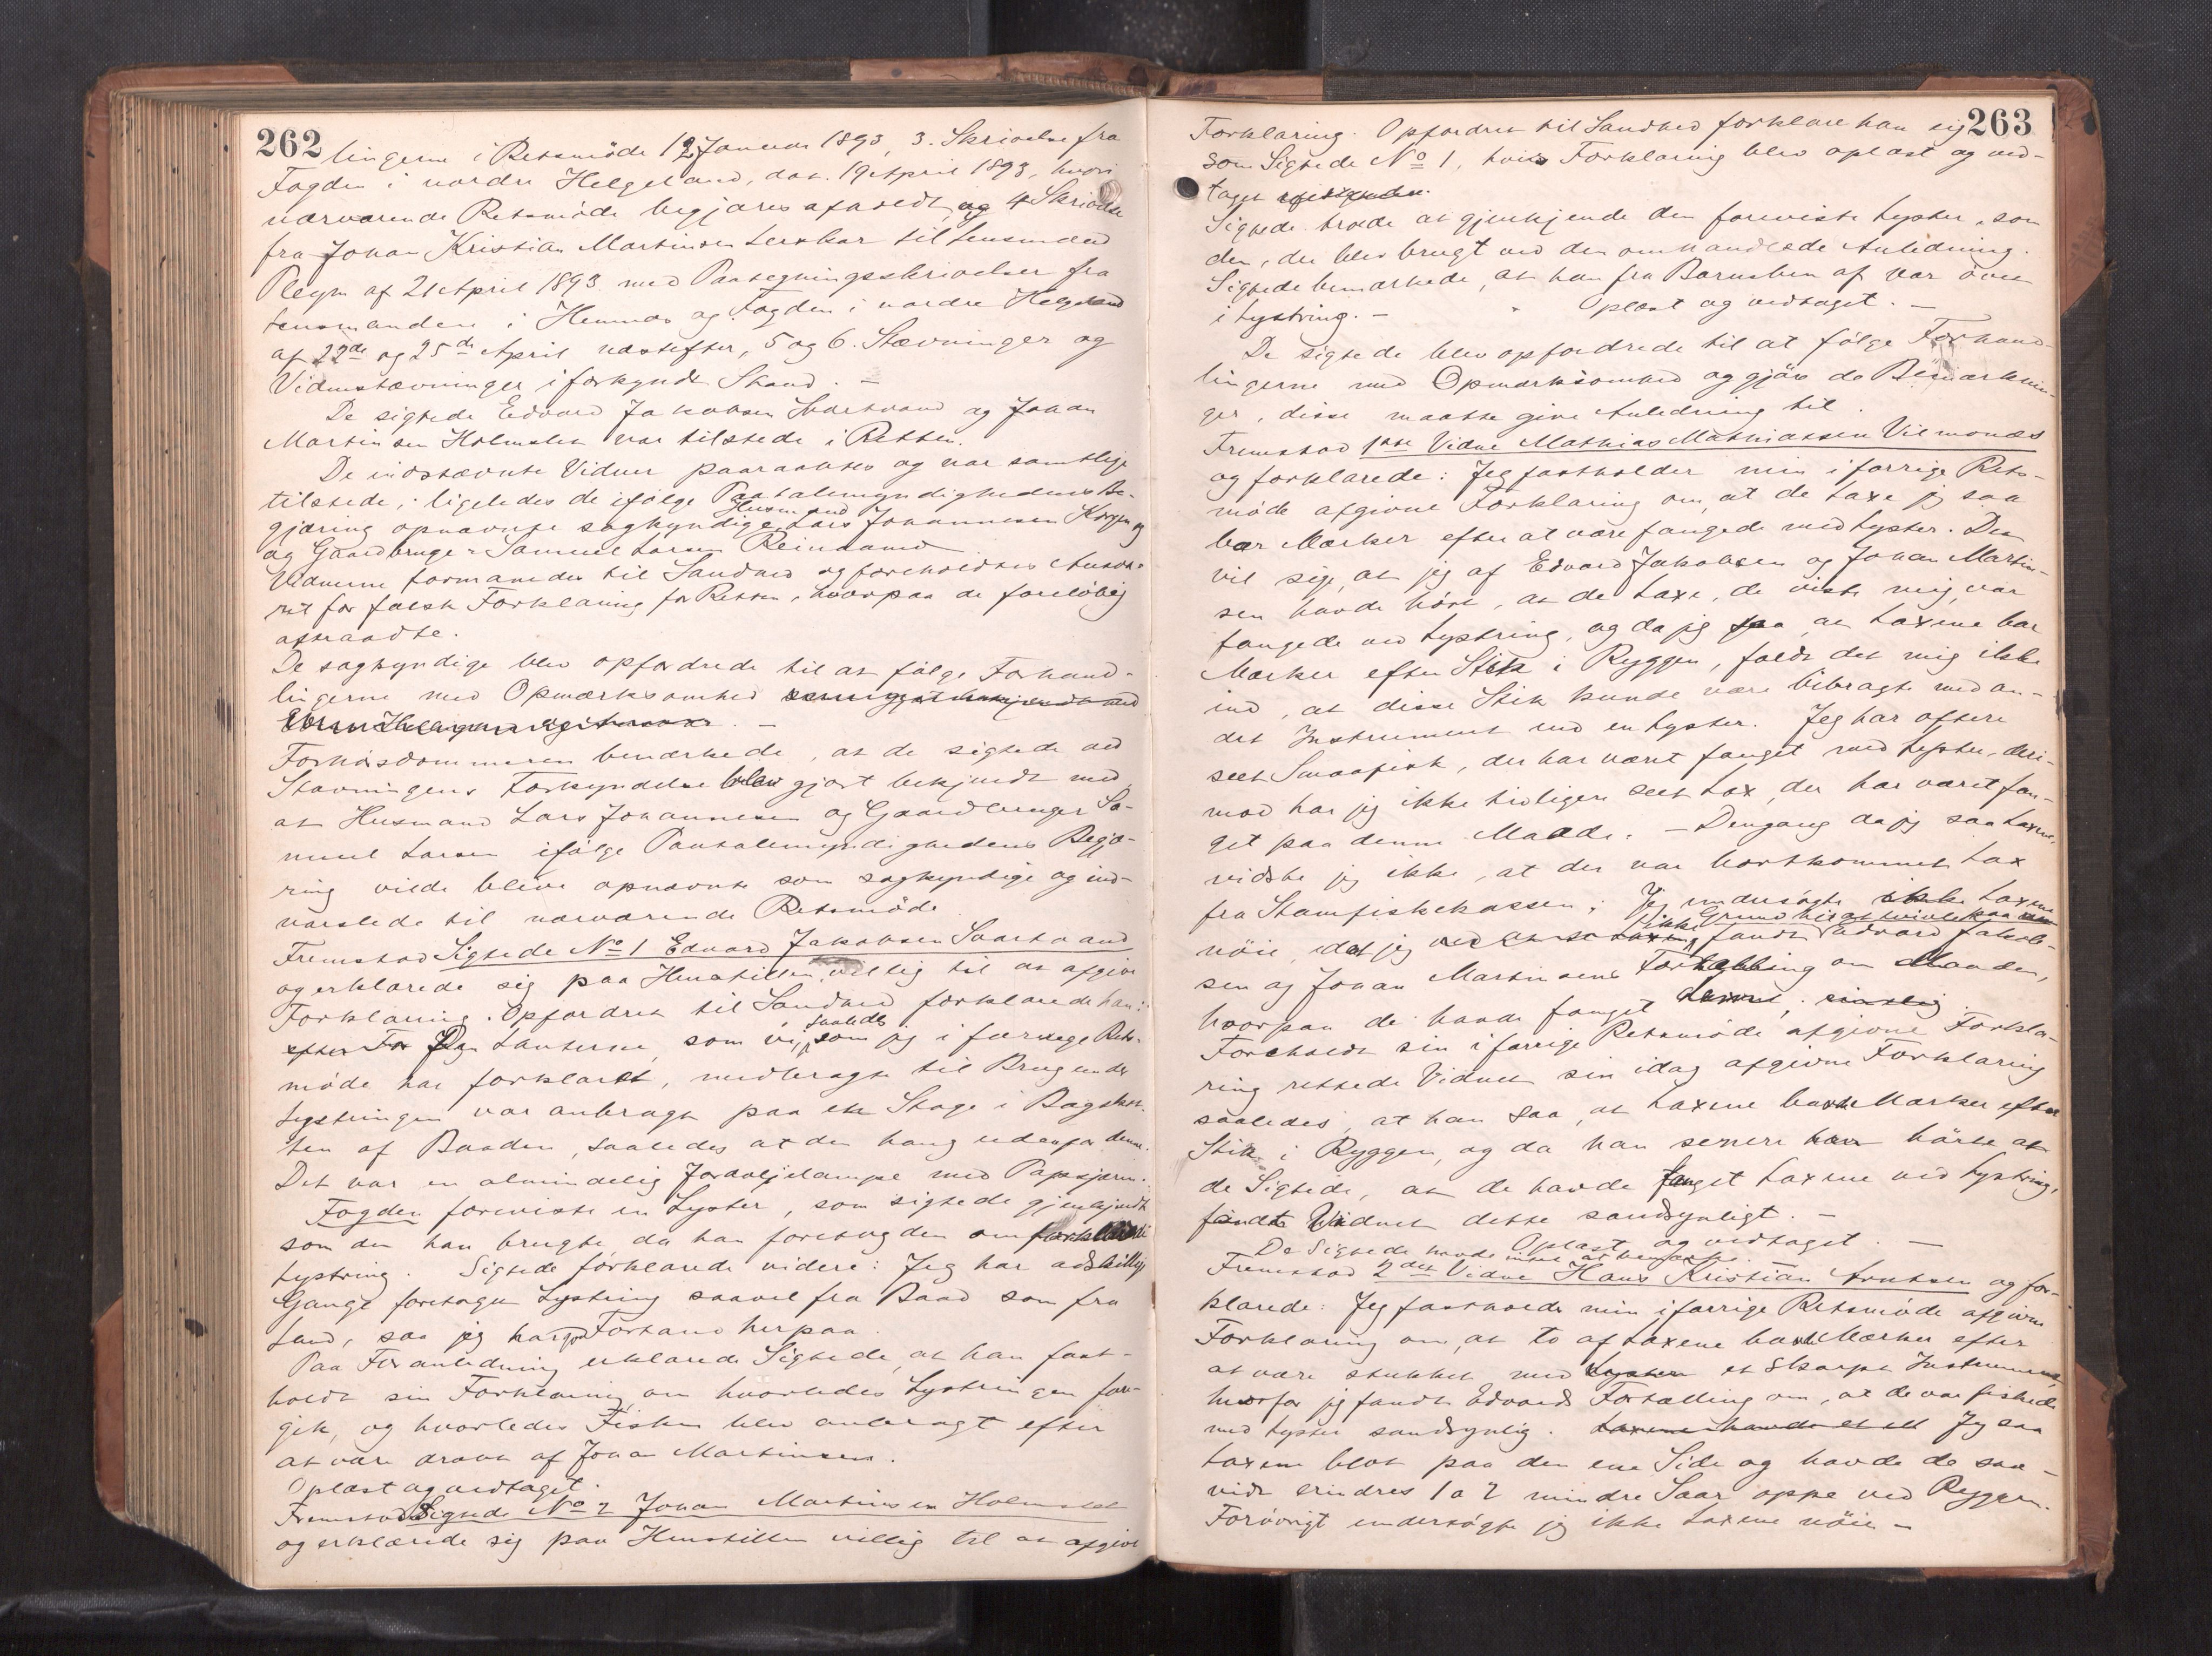 262
lingerne i Retsmöde 12 Januar 1893, 3. Skrivelse fra
Fogden i nordre Helgeland, dat. 19 April 1893, hvori
nærværende Retsmöde begjæres afholdt, og 4 Skrivelse
fra Johan Kristian Martinsen Lerskar til Lensmand
Plejm af 21 April 1893 med Paategningsskrivelser fra
Lensmanden i Hemnæs og Fogden i nordre Helgeland
af 22de og 25de April næstefter, 5 og 6. Stævninger og
Vidnestævninger i forkyndt Stand. —
De sigtede Edvard Jakobsen Svartvand og Johan
Martinsen Holmslet var tilstede i Retten.
De indstævnte Vidner paaraabtes og var samtlige
tilstede, ligeledes de ifölge Paatalemyndighedens Be-
gjæring opnævnte sagkyndige Husmand Lars Johannesen Korgen og
og Gaardbruger Samuel Larsen Reinaamo
Vidnerne formanedes til Sandhed og foreholdtes Ansva-
ret for falsk Forklaring for Retten, hvorpaa de foreløbig
aftraadte.
De sagkyndige blev opfordrede til at fölge Forhand-
lingerne med Opmærksomhed
Forhörsdommeren bemærkede, at de sigtede ved
Stævningens Forkyndelse blev gjort bekjendt med
at Husmand Lars Johannesen og Gaardbruger Sa-
muel Larsen ifölge Paatalemyndighedens Begjæ-
ring vilde blive opnævnte som sagkyndige og ind-
varslede til nærværende Retsmöde
Fremstod Sigtede No 1 Edvard Jakobsen Svartvand
og erklærede sig paa Henstillen villig til at afgive
Forklaring. Opfordret til Sandhed forklarede han:
efter For Den Lanterne, som vi, saaledes som jeg i forrige Rets-
möde har forklaret, medbragte til Brug under
Lystringen var anbragt paa en Stage i Bagskot-
ten af Baaden, saaledes at den hang udenfor denne.
Det var en almindelig Jordoljelampe med Papskjærm.
Fogden foreviste en Lyster, som sigtede gjenkjendte
som den han brugte da han foretog den omforklarede
Lystring. Sigtede forklarede videre: Jeg har adskillige
Gange foretaget Lystring saavel fra Baad som fra
Land, saa jeg har god Forstand herpaa.
Paa Foranledning erklærede Sigtede, at han fast-
holdt sin Forklaring om hvorledes Lystringen fore-
gik, og hvorledes Fisken blev anbragt efter
at være dræbt af Johan Martinsen.
Oplæst og vedtaget.
Fremstod Sigtede No 2 Johan Martinsen Holmslet
og erklærede sig paa Henstillen villig til at afgive
263
Forklaring. Opfordret til Sandhed forklare han sig
som Sigtede No 1, hvis Forklaring blev oplæst og ved-
taget
Sigtede troede at gjenkjende den foreviste Lyster, som
den, der blev brugt ved den omhandlede Anledning.
Sigtede bemærkede, at han fra Barnsben af var övet
i Lystring. — Oplæst og vedtaget. —
De sigtede blev opfordrede til at fölge Forhand-
lingerne med Opmærksomhed og gjöre de Bemærknin-
ger, disse maatte give Anledning til.
Fremstod 1ste Vidne Mathias Mathiassen Vilmonæs
og forklarede: Jeg fastholder min i forrige Rets-
möde afgivne Forklaring om, at de Laxe jeg saa
bar Mærker efter at være fangede med Lyster. Det
vil sige, at jeg af Edvard Jakobsen og Johan Martin-
sen havde hört, at de Laxe, de viste mig, var
fangede ved Lystring, og da jeg saa, at Laxene bar
Mærker efter Stik i Ryggen, faldt det mig ikke
ind, at disse Stik kunde være bibragte med an-
det Instrument end en Lyster. Jeg har oftere
seet Smaafisk, der har været fanget med Lyster, deri-
mod har jeg ikke tidligere seet Lax, der har været fan-
get paa denne Maade. — Dengang da jeg saa Laxene,
vidste jeg ikke, at der var bortkommet Lax
fra Stamfiskekassen; Jeg undersögte ikke Laxene
nöie, idet jeg ikke fandt Grund til at tvivle paa Edvard Jakob-
sen og Johan Martinsens Fortælling om Maaden,
hvorpaa de havde fanget
Foreholdt sin i forrige Retsmöde afgivne Forkla-
ring rettede Vidnet sin idag afgivne Forklaring
saaledes, at han saa, at Laxene havde Mærker efter
Stik i Ryggen, og da han senere hörte at
de Sigtede, at de havde fanget Laxene ved Lystring,
fandt Vidnet dette sandsynligt. —
Oplæst og vedtaget. —
De Sigtede havde intet at bemærke. —
Fremstod 2det Vidne Hans Kristian Arntsen og for-
klarede: Jeg fastholder min i forrige Retsmöde afgivne
Forklaring om, at to af Laxene havde Mærker efter
at være stukket med Lyster et skarpt Instrument,
hvorfor jeg fandt Edvards Fortælling om, at de var fiskede
med Lyster sandsynlig. Laxene havde et all Jeg saa
Laxene blot paa den ene Side og havde de saa-
vidt erindres 1 a 2 mindre Saar oppe ved Ryggen.
Forövrigt undersögte jeg ikke Laxene nöie —